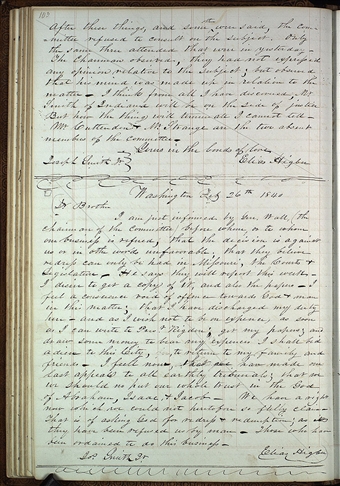 102
After these things, and some other were said, the com-
mittee refused to consult on the subject. Only
the same three attended that were in yesterday—
The Chairman observed, they had not expressed
any opinion relative to the subject; but observed
that his mind was made up in relation to the
matter— I think from all I have discovered, Mr
Smith of Indiana will be on the side of justice
But how the thing will terminate I cannot tell—
Mr. Crittenden & Mr Strange are the two absent
members of the Committee—
Yours in the bonds of love,
Joseph Smith Jr Elias Higbee
Washington Feb 26th 1840
Dr Brother
I am just informed by Gen. Wall, the
chairman of the Committee before whom, or to whom
our business is refered, that the decision is against
us or in other words unfavorable, that they believe
redress can only be had in Missouri, the Courts &
Legislature— He says they will report this week—
I desire to get a copy of it, and also the papers— I
feel a conscience void of offence toward God & man
in this matter; that I have discharged my duty
here— and as I wish not to be on expence, as soon
as I can write to Prest Rigdon, get my papers; and
draw some money to bear my expences I shall bid
adieu to this City, to return to my family and
friends— I feel now, that we have made our
last appeal to all earthly tribunals; that we
we should now put our whole trust in the God
of Abraham, Isaac & Jacob— We have a right
now which we could not heretofore so fully claim—
That is of asking God for redress & redemption; as
they have been refused us by man— Those who have
been ordained to do this business—
Jos. Smith Jr Elias Higbee